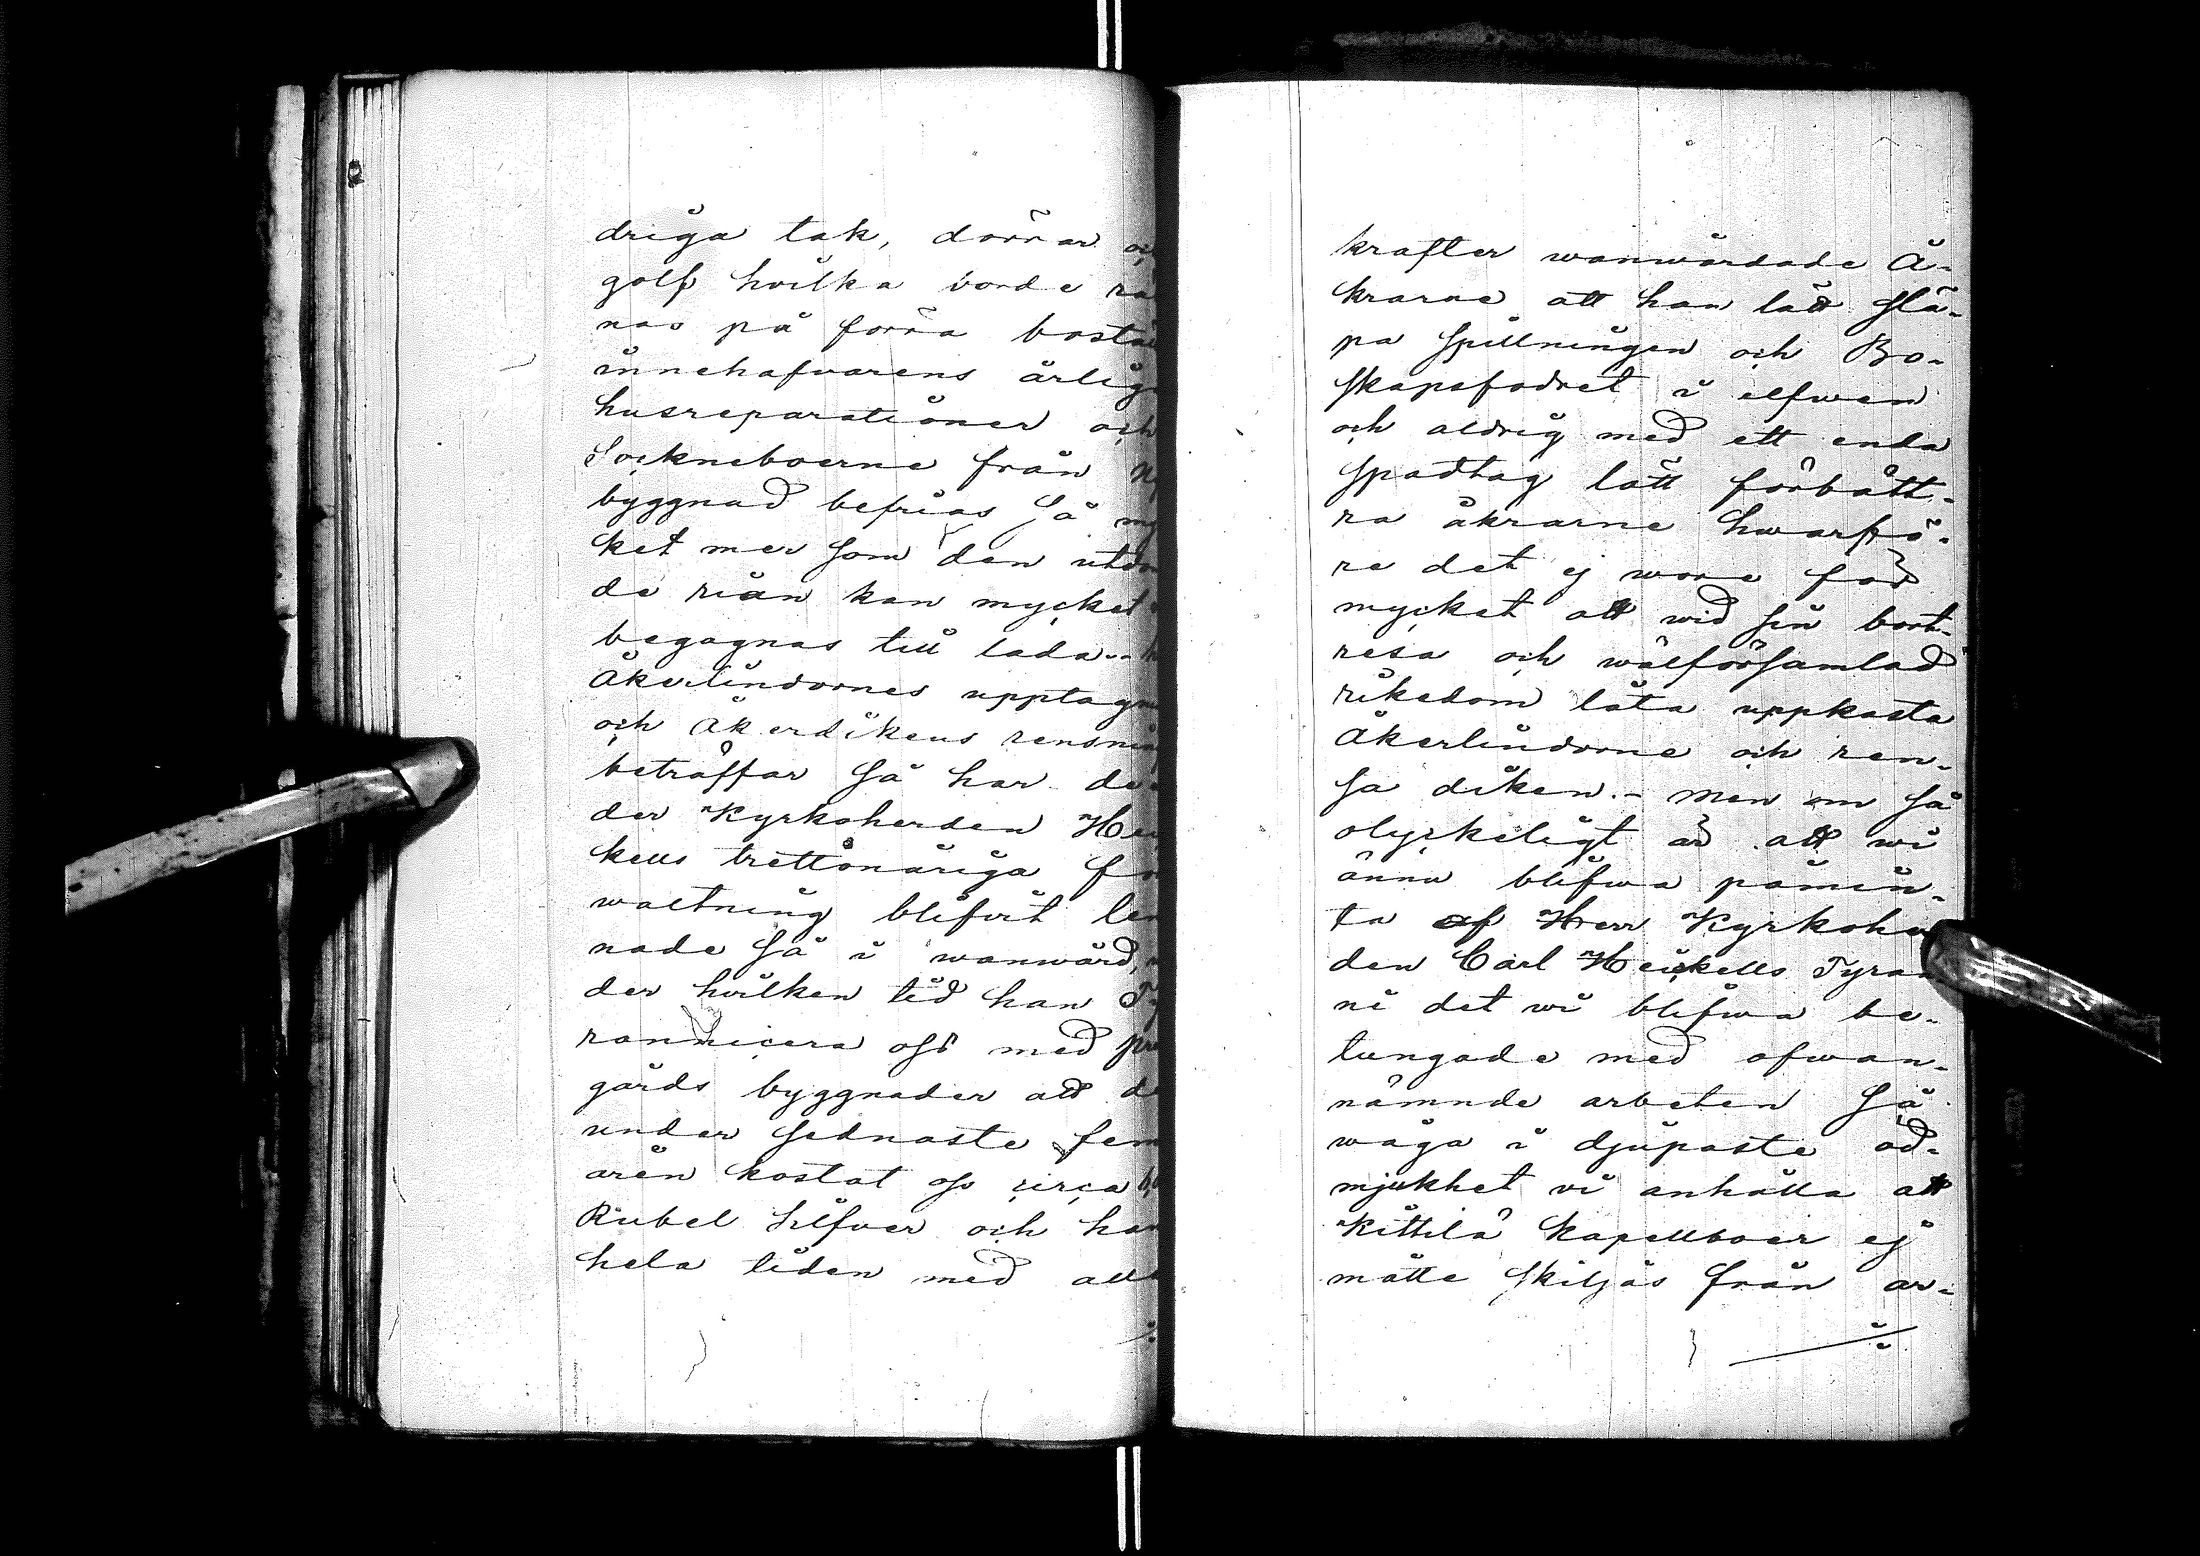 driga tak, dörrar
golf hvilka borde
nas på förra
innehafvarens
husreparationer och
Sockneboerne från
byggnad befrias Så
ket mer som den
de rian kan mycket
begagnas till lada..
Åkerlindornes
och åkerdikens
beträffar Så har
der Kyrkoherden
kells trettonåriga
waltning blifvit
nade Så i wanwård,
der hvilken tid han
rannicera oss med
gårds byggnader att
under Sednaste
åren kostat oss circa
Rubel Silfver och
hela tiden med
krafter wanwårdade Å-
krarne att han lått Slä-
pa Spillningen och Bo-
skapsfodret i elfwen
och aldrig med ett enda
Spadtag lått förbätt-
ra åkrarne hwarfö-
re det ej wore för
mycket att wid Sin bort-
resa och wälförsamlad
rikedom låta uppkasta
Åkerlindorne och ren-
sa diken.- men om Så
olyckeligt är att wi
ännu blifwa påmin-
ta af Herr Kyrkoher
den Carl Heickells Tyran
ni det wi blifwa be-
tungade med ofwan-
nämnde arbeten Så
wåga i djupaste öd-
mjukhet vi anhålla att
Kittilä Kapellboer ej
måtte Skiljas från ar-